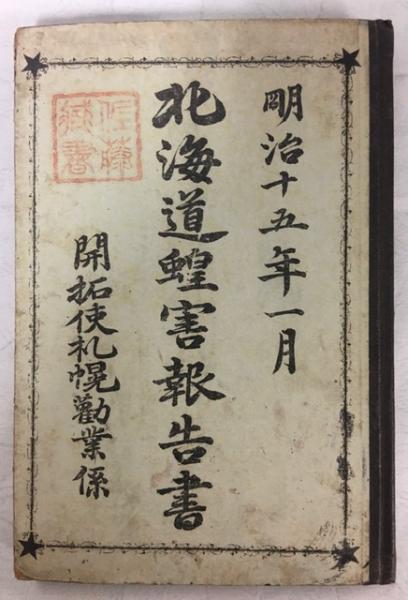 明治十五年一月
北海道蝗害報告書
開拓使札幌勸業係
佐藤
藏書